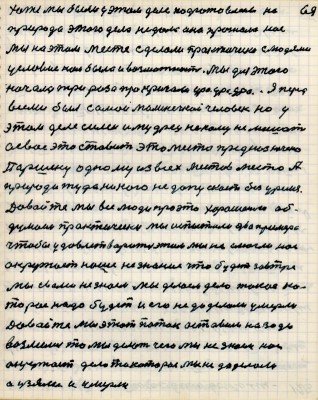 69
тоже мы были у этом деле подготовлены на
природа этого дела недопускала прогнала нас
Мы на этом месте сделали практически с людями
условие нам была и возможность. Мы для этого
начала три раза прокричала ура ура ура. Я перед
всеми был самой маленькой человек но у
этом деле сила и мудрец никому не мешать
а свое это ставить Это место предназначено
Паршеку одному из всех Аистов место А
природа туда никого не допускает без время.
Давайте мы все люди про это хорошенько об
думаем практически мы испытали два примера
чтобы удовлетворять
мы не смогли нас
окружает наше незнание что будет завтра
мы с вами незнаем мы делаем дело такое ко
торое надо будет и его не доделали умерли
Давайте мы этот поток оставим назадь
возмем то мы делать чего мы не знаем нас
окружает дело такоторая мы не доделали
а взялися и умерли